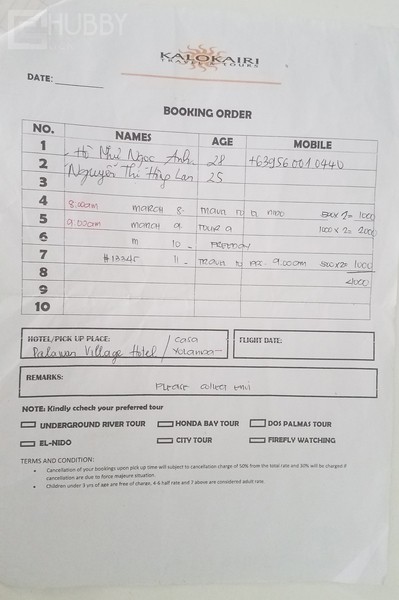 HUBBY
KALOKAIRI
TRAVEL & TOURS
DATE:
BOOKING ORDER
NO. NAMES AGE MOBILE
1 Hồ Như Ngọc Anh 28 +639560010440
2 Nguyễn Thị Hồng Lan 25
3
4 8:00am MARCH 8 - TRAVEL TO EL NIDO 500 x 2 = 1000
5 9:00am MARCH 9 - TOUR A 1000 x 2 = 2000
6 M 10 - FREEDAY
7 #13345 11 - TRAVEL TO PPC. 9:00am 500x2= 1000
8 4000
9
10
HOTEL/PICK UP PLACE: Casa
Palawan Village Hotel / Yolanda
FLIGHT DATE:
REMARKS:
Please collect
NOTE: Kindly ccheck your preferred tour
UNDERGROUND RIVER TOUR HONDA BAY TOUR DOS PALMAS TOUR
EL-NIDO CITY TOUR FIREFLY WATCHING
TERMS AND CONDITION:
• Cancellation of your bookings upon pick up time will subject to cancellation charge of 50% from the total rate and 30% will be charged if
cancellation are due to force majeure situation.
• Children under 3 yrs of age are free of charge, 4-6 half rate and 7 above are considered adult rate.